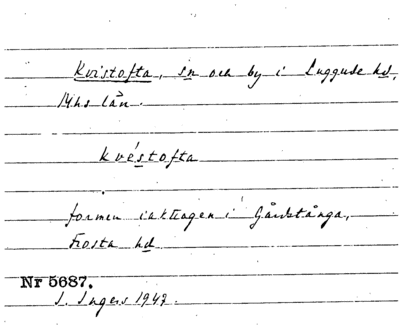 Kvistofta, sn och by i Luggude hd,
Mhs län.
kvéstofta
formen iakttagen i Gårdstånga,
Frosta hd
Nr 5687.
I. Ingers 1949.